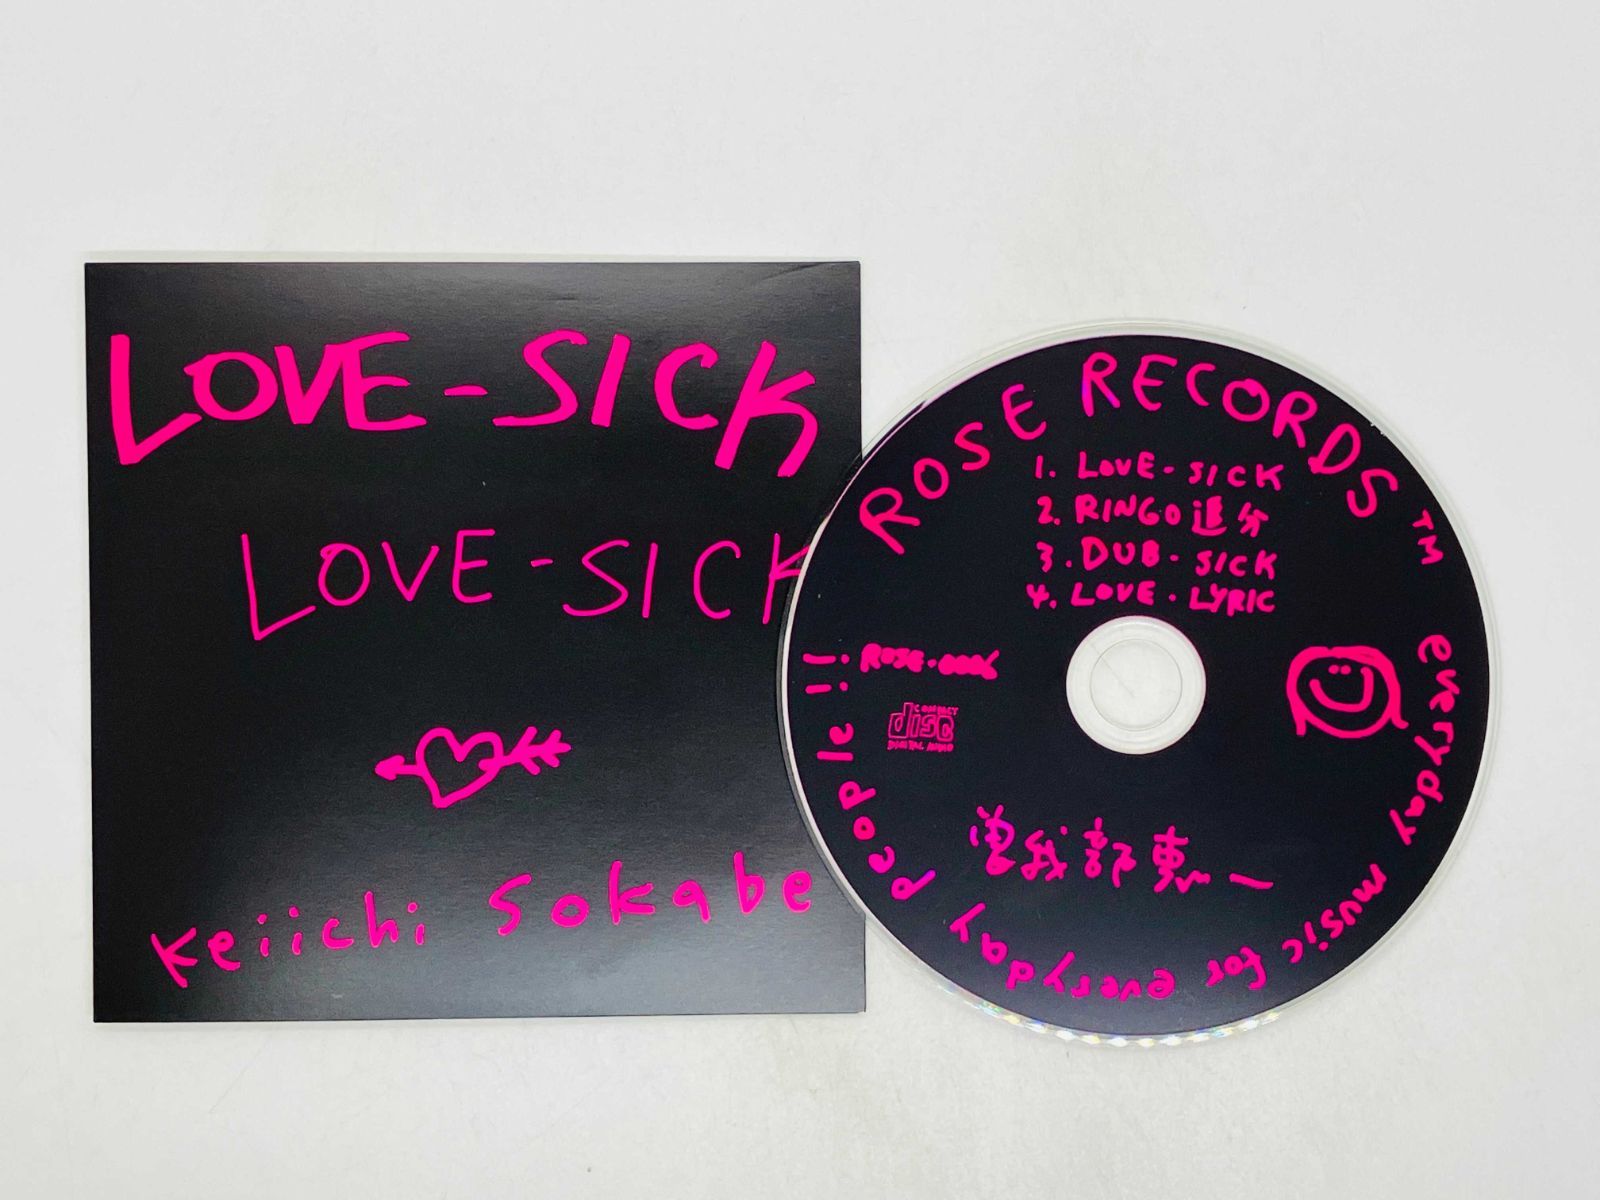 LOVE-SICK
LOVE-SICK
Keiichi Sokabe
ROSE RECORDS™
1. LOVE-SICK
2. RINGO追分
3. DUB-SICK
4. LOVE-LYRIC
ROSE-0006
COMPACT
disc
DIGITAL AUDIO
曽我部恵一
everyday music for everyday people!!